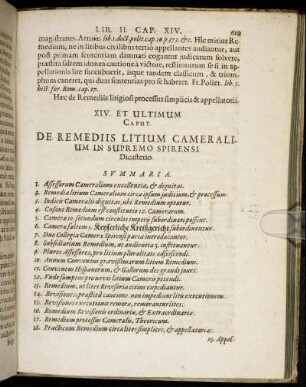 LIB. II. CAP. XIV. 619
magistratus. Armiæ. lib. 1. doct. polit. cap. 16. p. 372. &c. Hic mitius Re-
medium, ne in litibus civilibus tertio appellantes audiantur, aut
post primam sententiam damnati cogantur judicatum solvere,
præstita saltem idonea cautione à victore, restituturum se si in ap-
pellationis lite succubuerit, isque tandem classicum, & trium-
phum caneret, qui duas sententias pro se haberet. Fr. Pollet. lib. 5.
hist. for. Rom. cap. 17.
Hæc de Remediis litigiosi processus simplicis & appellatorii.
XIV. ET ULTIMUM
CAPUT.
DE REMEDIIS LITIUM CAMERALI-
UM IN SUPREMO SPIRENSI
Dicasterio.
SUMMARIA.
1. Assessorum Cameralium excellentia, & dignitas.
2. Remedia litium Cameralium circa ipsum judicium, & processum.
3. Judicis Cameralis dignitas, ubi Remedium optatur.
4. Cusani Remedium est constitutio 12. Camerarum.
5. Camera 10. secundum circulos imperii subordinatæ possent.
6. Cameræ saltem 3. Keyserliche Kreißgericht subordinentur.
7. Duo Collegia Cameræ Spirensis parva introducantur.
8. Subsidiarium Remedium, ut auditoria 5. instituantur.
9. Plures Assessores, pro litium pluralitate adsciscendi.
10. Annuus Conventus gravissimarum litium Remedium.
11. Conventus Hispanorum, & Gallorum des grands jours.
12. Unde sumptus pro novis litium Cameris petendi.
13. Remedium, ut lites Revisoriæ citius expediantur.
14. Revisiones, præstita cautione non impediant litis executionem.
15. Revisiones extraordinariæ remora, removentur lites.
16. Remedium Revisionis ordinariæ, & Extraordinariæ.
17. Remedium processus Cameralis, Theoricum.
18. Practicum Remedium circa lites simplices, & appellatorias.
19. Appel-